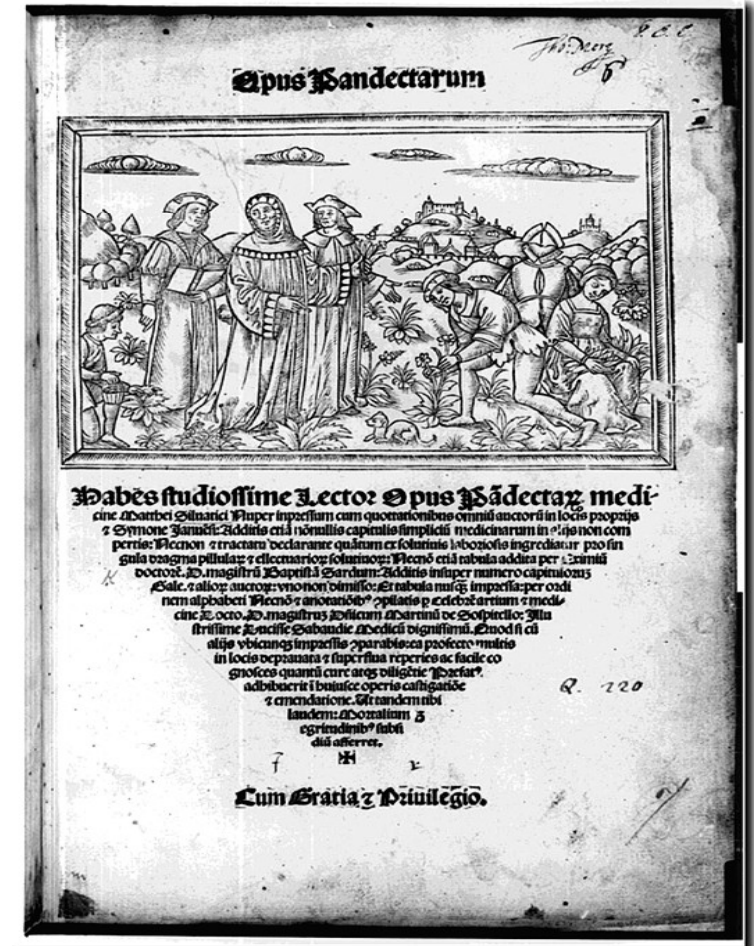 Opus Pandectarum
Habēs studiosissime Lector Opus Pādectaꝝ medi-
cine Matthei Siluatici Nuper inpressum cum quottationibus omniū auctorū in locis proprijs
⁊ Symone Januēsi: Additis etiā nōnullis capitulis simpliciū medicinarum in alijs non com
pertis: Necnon ⁊ tractatu declarante quātum ex solutiuis laboriosis ingrediatur pro sin
gula dragma pillulaꝝ ⁊ ellectuarioꝝ solutiuoꝝ: Necnō etiā tabula addita per Eximiū
doctorē. D. magistrū Baptistā Sardum: Additis insuper numero capitulorum
Gale. ⁊ alioꝝ auctoꝝ: vno non dimisso: Et tabula nusqȝ impressa: per ordi
nem alphabeti Necnō ⁊ anotatiōibꝰ ꝯpilatis ꝑ celebrē artium ⁊ medi-
cine Docto. D. magistruȝ Martinū de Sospitello: Illu
strissime Ducisse Sabaudie Medicū dignissimū. Quod si cū
alijs vbicunqȝ impressis ꝯparabis: ea profecto multis
in locis deprauata ⁊ superflua reperies ac facile co
gnosces quantū cure atqȝ diligētie Prefatꝰ.
adhibuerit ī huiusce operis castigatiōe
⁊ emendatione. Ut tandem tibi
laudem: Mortalium ȝ
egritudinibꝰ subsi
diū afferret.
Cum Gratia ⁊ Priuilegio.
Q. 220